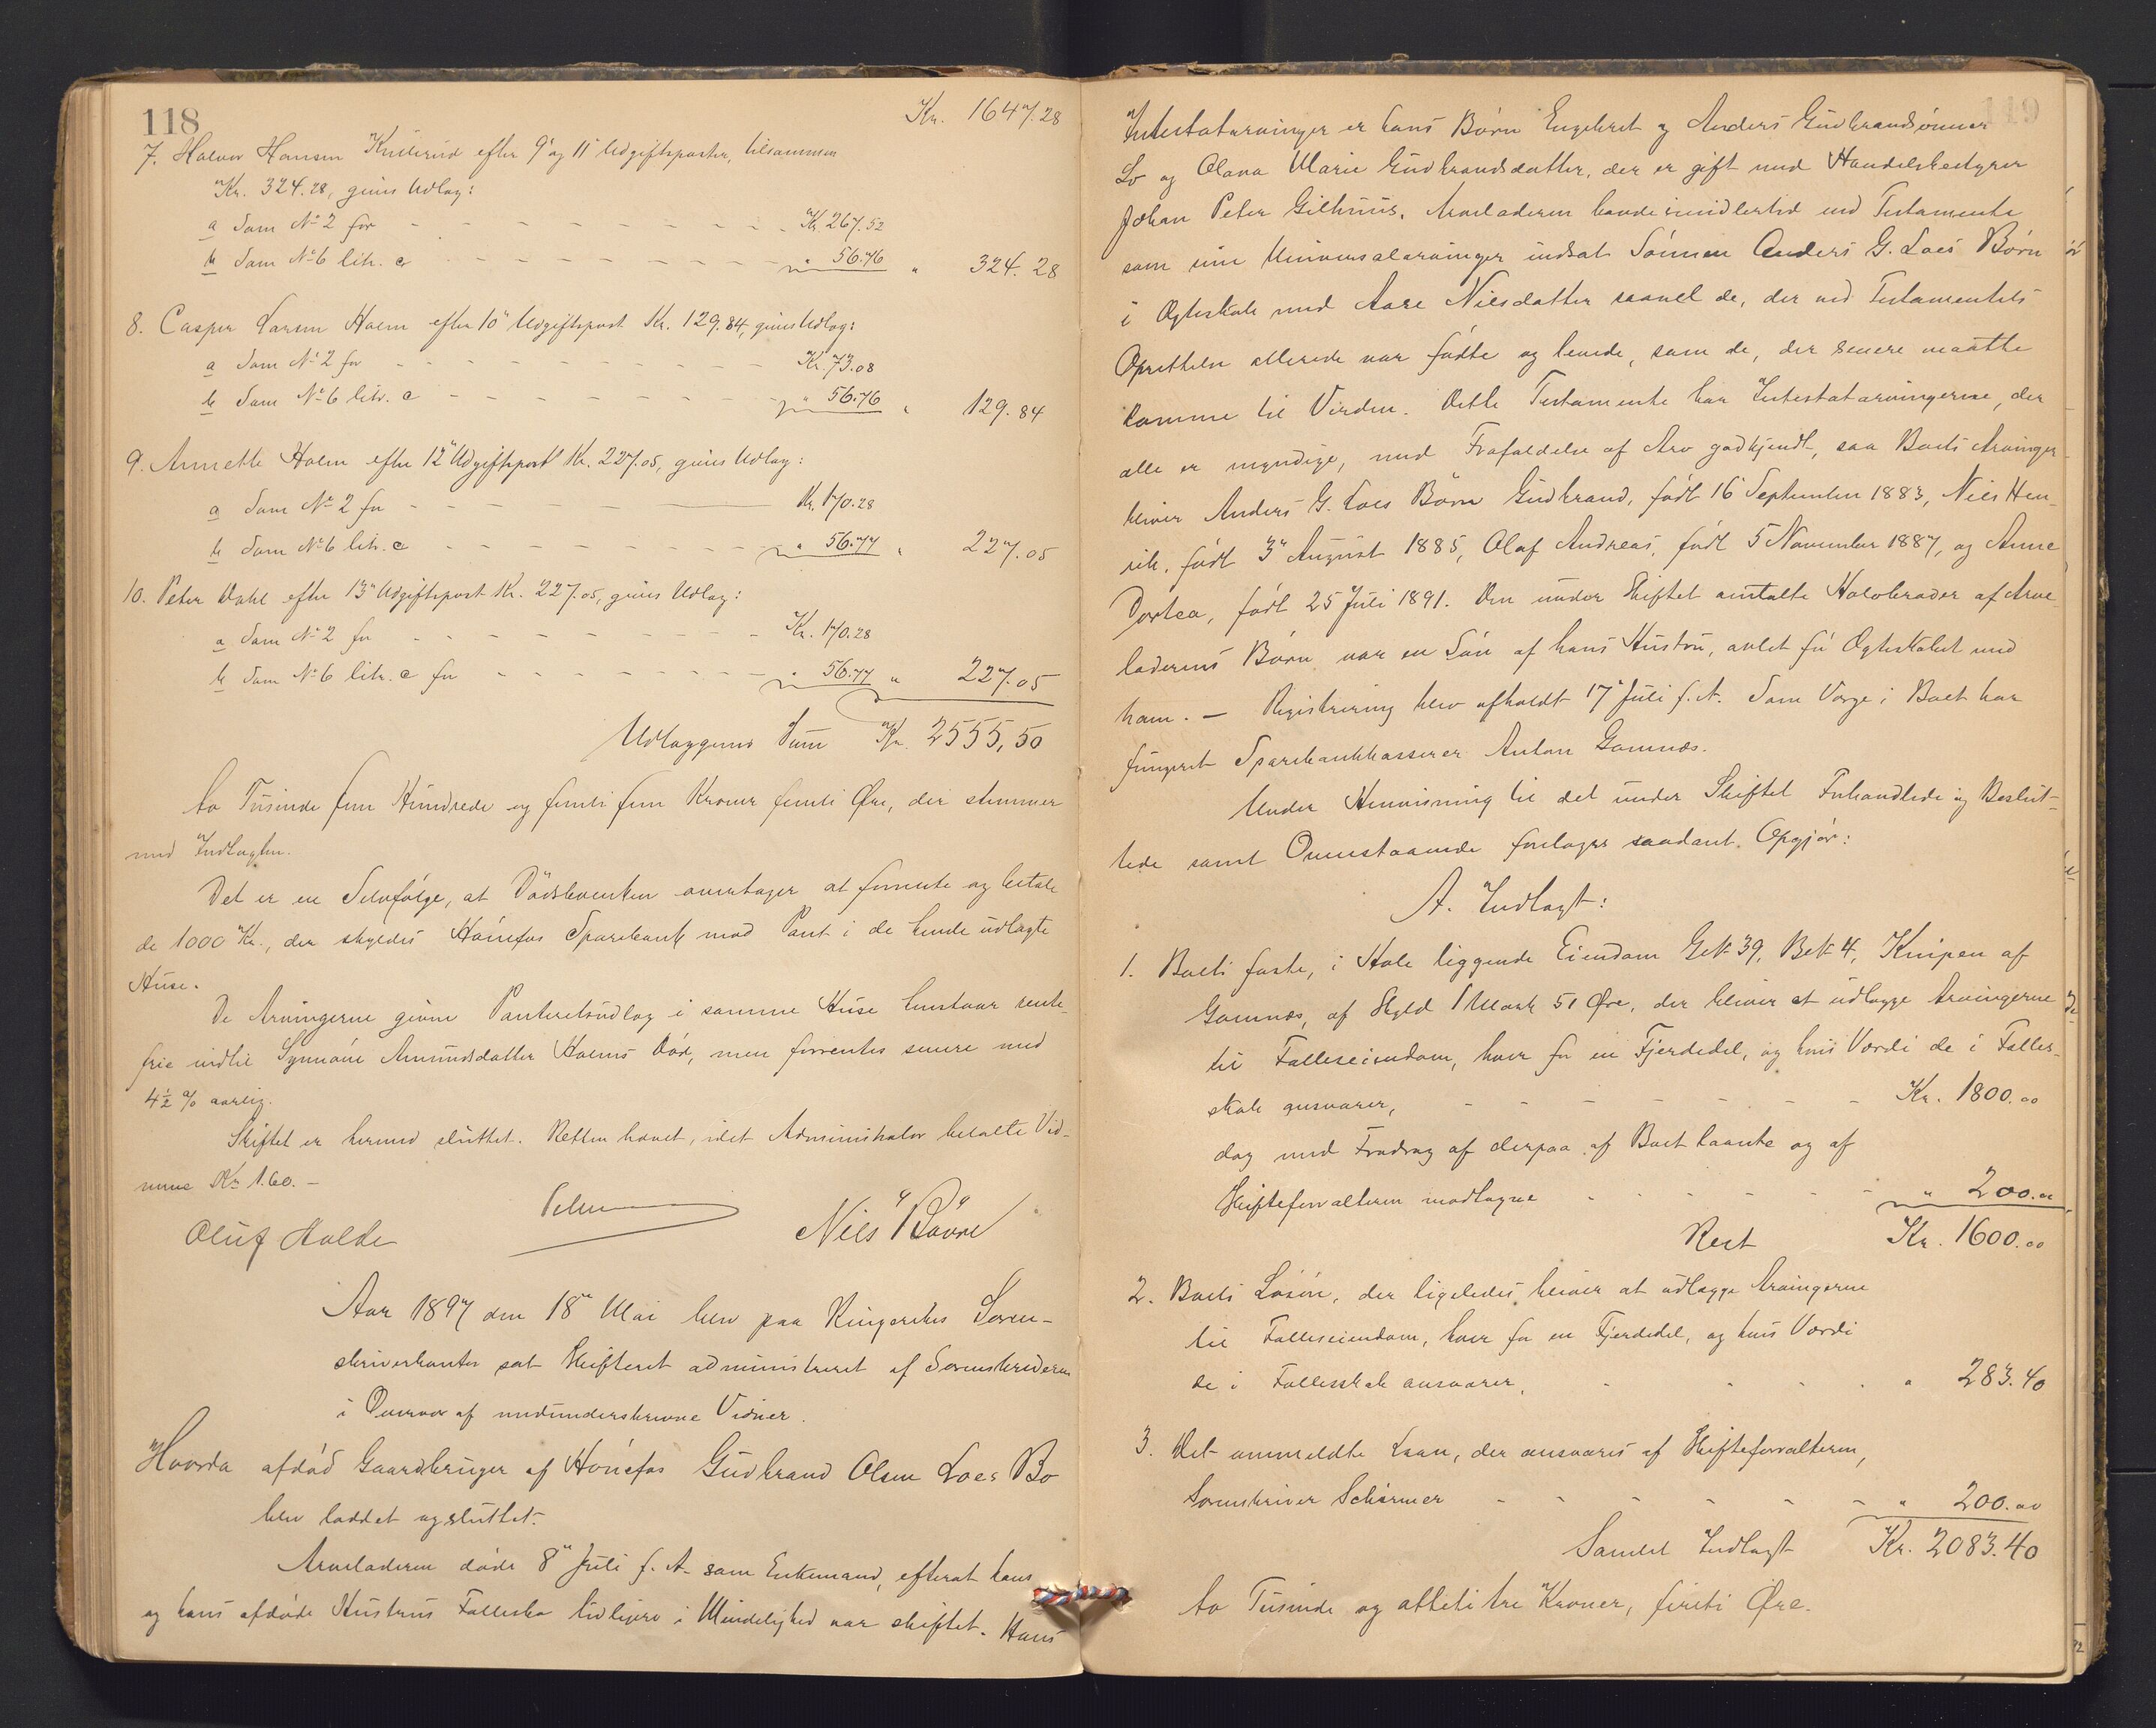 118
Kr. 1647.28
7. Halvor Hansen Kullerud efter 9de og 11te Udgiftsposter, tilsammen
Kr. 324.28, gives Udlæg:
a Sam No 2 for - - - Kr. 267.52
b Sam No 6 litr. c - - - " 56.76 " 324.28
8. Casper Larsen Holm efter 10de Udgiftspost Kr. 129.84, gives Udlæg:
a Sam No 2 for - - - Kr. 73.08
b Sam No 6 litr. c - - - " 56.76 " 129.84
9. Annette Holm efter 12te Udgiftspost Kr. 227.05, gives Udlæg:
a Sam No 2 for - - - Kr. 170.28
b Sam No 6 litr. c - - - " 56.77 " 227.05
10. Peter Dahl efter 13de Udgiftspost Kr. 227.05, gives Udlæg:
a Sam No 2 for - - - Kr. 170.28
b Sam No 6 litr. c for - - - " 56.77 " 227.05
Udlæggenes Sum Kr. 2555,50
to Tusinde fem Hundrede og femti fem Kroner femti Øre, der stemmer
med Indtægten.
Det er en Selvfølge, at Dødsboenken overtager at forrente og betale
de 1000 Kr., der skyldes Hønefos Sparebank mod Pant i de hende udlagte
Huse.
De Arvingerne givne Panteretsudlæg i samme Huse henstaar rente-
frie indtil Synnøve Amundsdatter Holms Død, men forrentes senere med
4½ % aarlig.
Skiftet er hermed sluttet. Retten hævet, idet Administrator betalte Vid-
nerne Kr 1.60. -
Oluf Halde
Niels Bövre
Aar 1897 den 18de Mai blev paa Ringerikes Soren-
skriverkontor sat Skifteret administreret af Sorenskriveren
i Overvær af medunderskrevne Vidner.
Hvorda afdød Gaardbruger af Hönefos Gudbrand Olsen Loes Bo
blev loddet og sluttet.
Arveladeren døde 8de Juli f. A. som Enkemand, efterat hans
og hans afdøde Hustrus Fællesbo tidligere i Mindelighed var skiftet. Hans
119
Intestatarvinger er hans Børn Engebret og Anders Gudbrandsønner
Lo og Olava Marie Gudbrandsdatter, der er gift med Handelsbestyrer
Johan Peter Gilhuus. Arveladeren havde imidlertid ved Testamente
som sine Universalarvinger indsat Sønnen Anders G. Loes Børn
i Ægteskab med Aase Nilsdatter saavel de, der ved Testamentets
Oprettelse allerede var fødte og levede, som de, der senere maatte
komme til Verden. Dette Testamente har Intestatarvingerne, der
alle er myndige, med Frafaldelse af Arv godkjendt, saa Boets Arvinger
bliver Anders G. Loes Børn Gudbrand, født 16 September 1883, Niels Hen-
rik, født 3de August 1885, Olaf Andreas, født 5 November 1887, og Anne
Dortea, født 25 Juli 1891. Den under Skiftet omtalte Halvbroder af Arve-
laderens Børn var en Søn af hans Hustru, avlet før Ægteskabet med
ham. - Registrering blev afholdt 17de Juli f. A. Som Værge i Boet har
fungeret Sparebankkasserer Anton Gomnæs.
Under Henvisning til det under Skiftet Forhandlede og Beslut-
tede samt Ovenstaaende foretages saadant Opgjør:
A. Indtægt:
1. Boets faste, i Hole liggende Eiendom G.No 39, B.No 4, Knipen af
Gomnæs, af Skyld 1 Mark 51 Øre, der bliver at udlægge Arvingerne
til Fælleseiendom, hver for en Fjerdedel, og hvis Værdi de i Fælles-
skab ansvarer, - - - Kr. 1800.00
dog med Fradrag af derpaa af Boet laante og af
Skifteforvalteren modtagne - - - " 200.00
Rest Kr. 1600.00
2. Boets Løsøre, der ligeledes bliver at udlægge Arvingerne
til Fælleseiendom, hver for en Fjerdedel, og hvis Værdi
de i Fællesskab ansvarer, - - - " 283.40
3. Det ommeldte Laan, der ansvares af Skifteforvalteren,
Sorenskriver Schirmer - - - " 200.00
Samlet Indtægt Kr. 2083.40
to Tusinde og otteti tre Kroner, firti Øre.